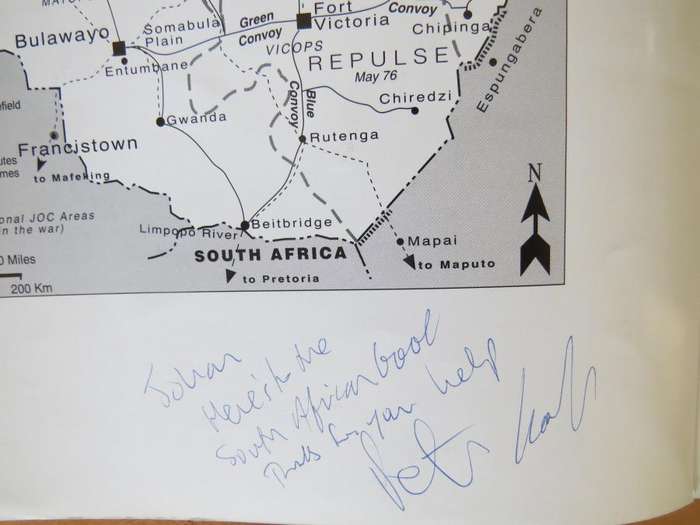 Fort
Victoria
Convoy
Somabula
Plain
Green
Convoy
Chipinga
Bulawayo
VICOPS
REPULSE
May 76
Entumbane
Espungabera
Convoy
Blue
Chiredzi
Gwanda
Rutenga
Francistown
to Mafeking
onal JOC Areas
in the war)
Limpopo River
Beitbridge
SOUTH AFRICA
Mapai
to Maputo
to Pretoria
N
0 Miles
200 Km
Johan
Here's to the
South African book
Thanks for your help
Peter